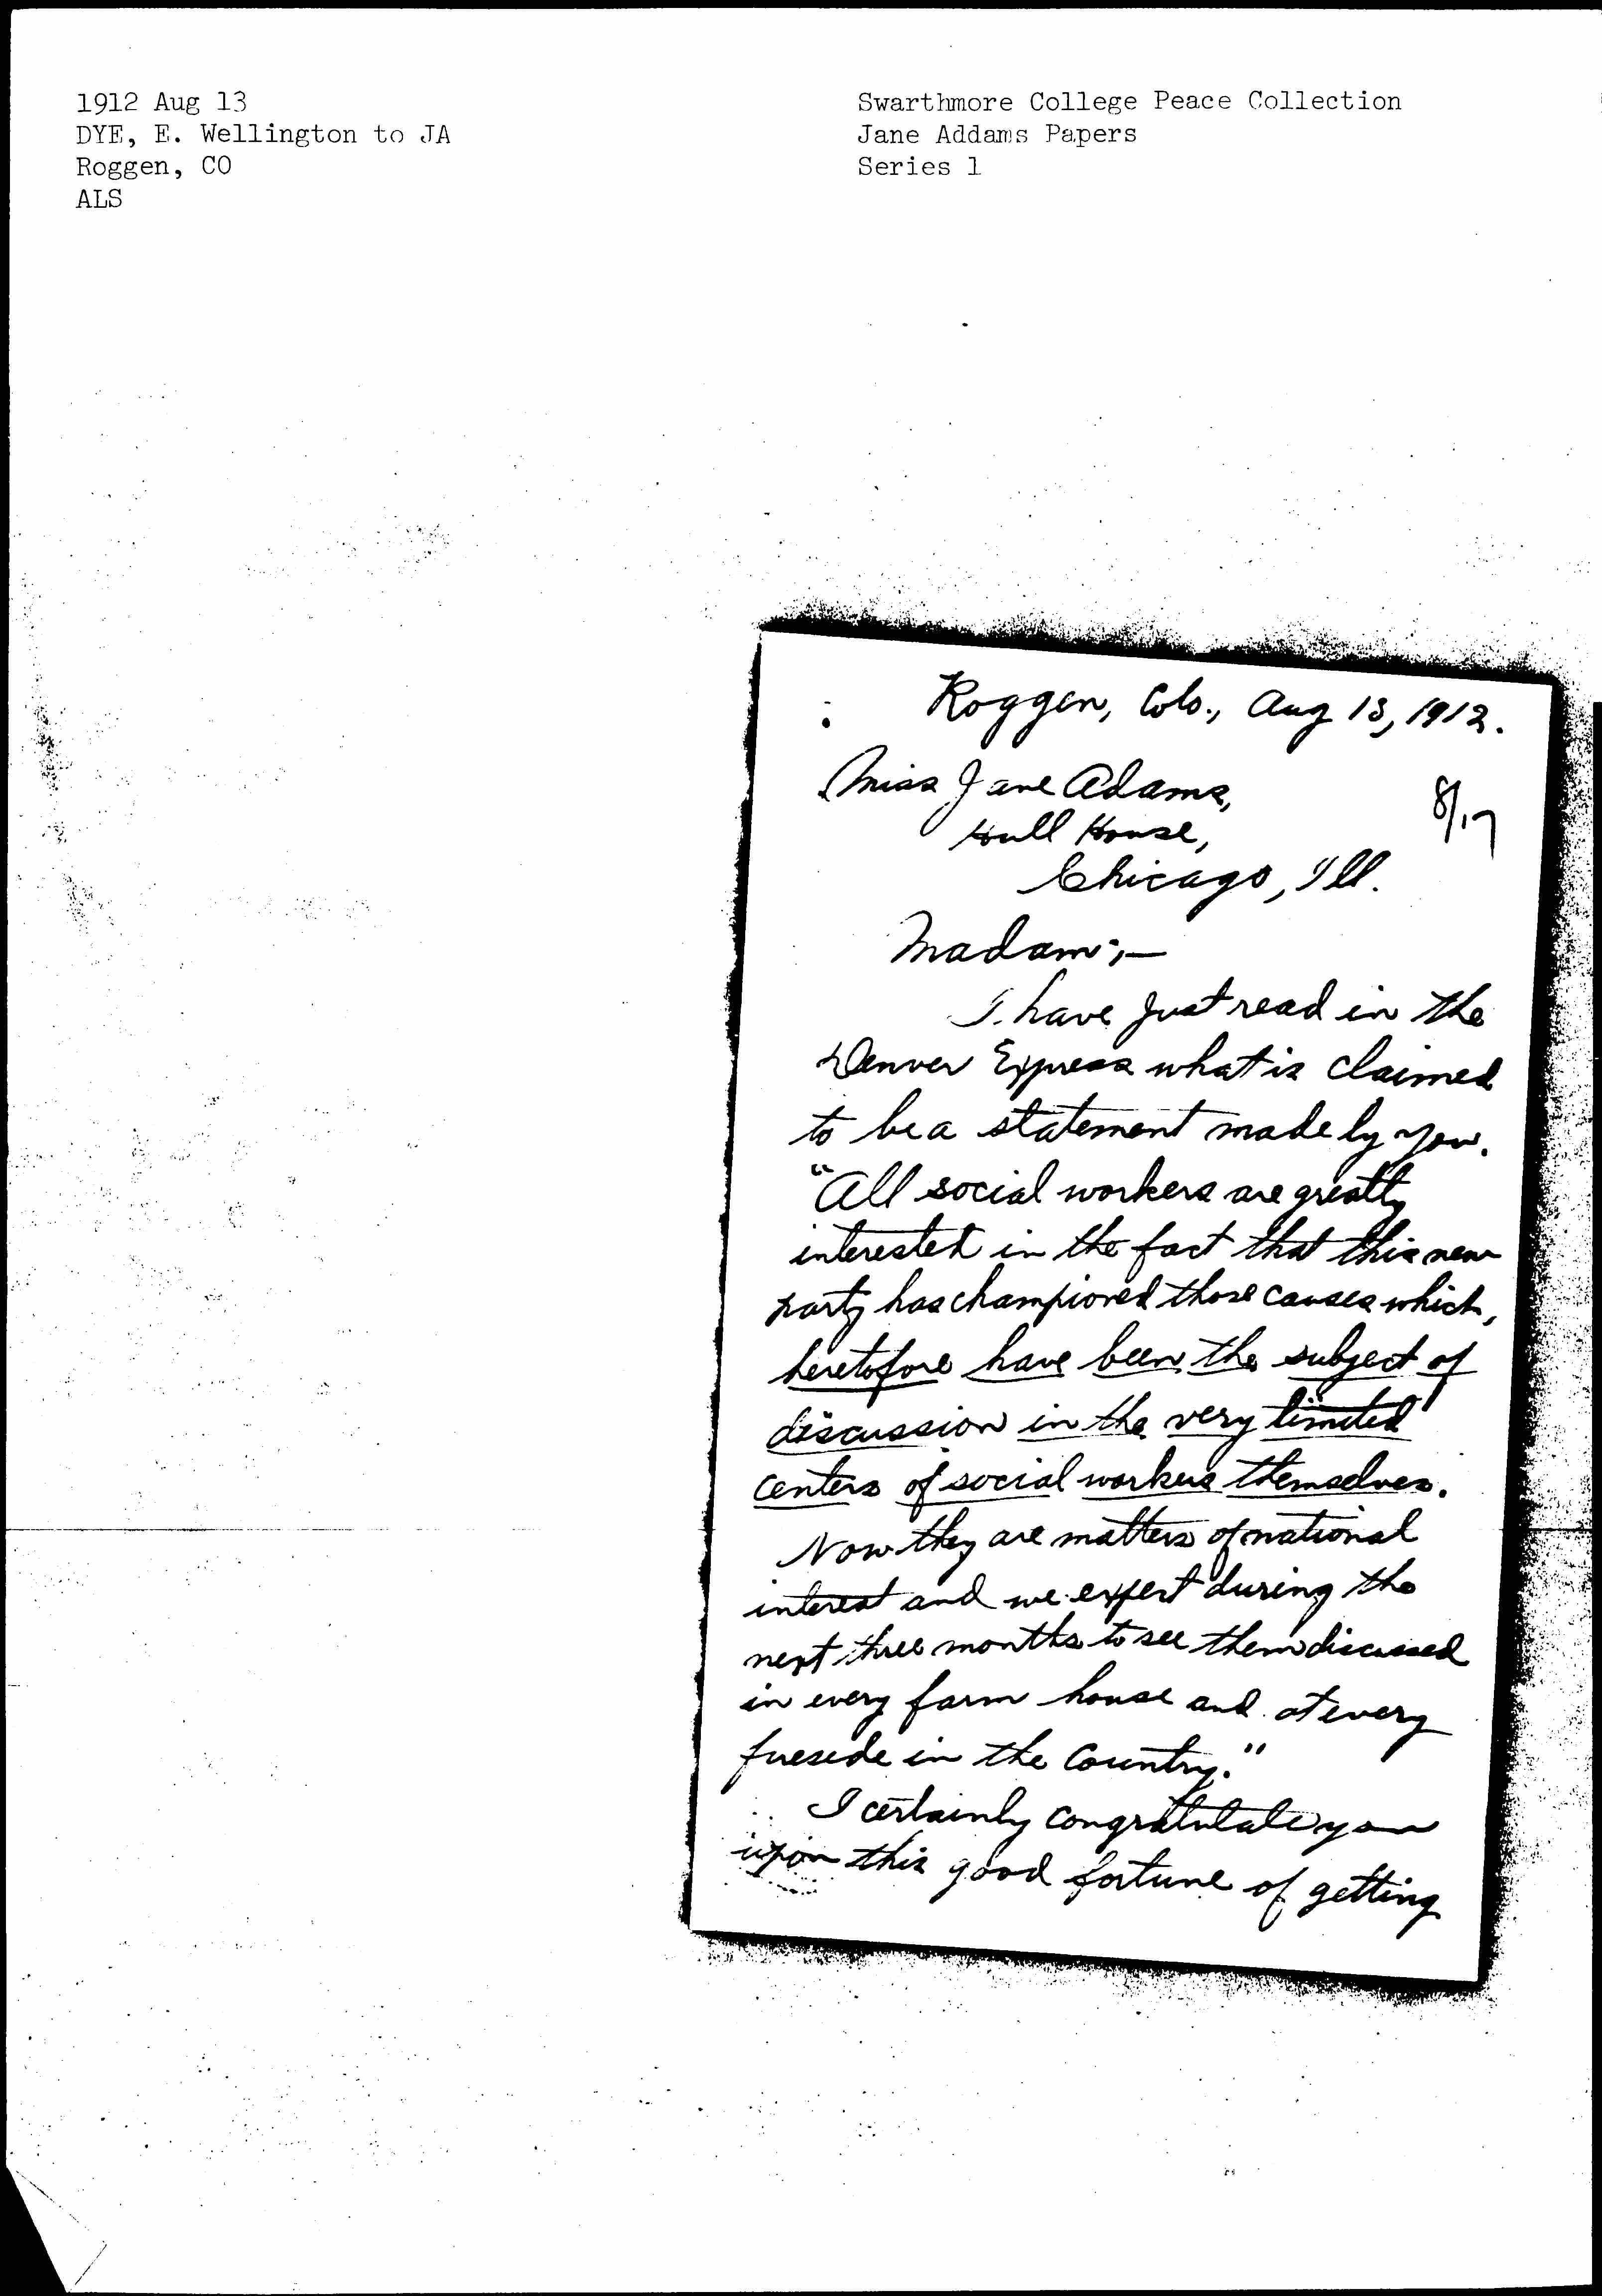 1912 Aug 13
DYE, E. Wellington to JA
Roggen, CO
ALS
Swarthmore College Peace Collection
Jane Addams Papers
Series 1
Roggen, Colo., Aug 13, 1912.
Miss Jane Adams,
8/17
Hull House,
Chicago, Ill.
Madam:—
I have just read in the
Denver Express what is claimed
to be a statement made by you.
"All social workers are greatly
interested in the fact that this new
party has championed those causes which,
heretofore have been the subject of
discussion in the very limited
centers of social workers themselves.
Now they are matters of national
interest and we expect during the
next three months to see them discussed
in every farm house and at every
fireside in the country."
I certainly congratulate you
upon this good fortune of getting